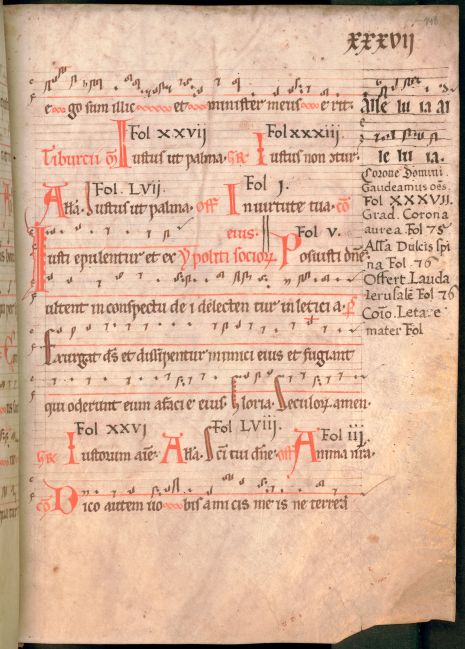 xxxvii
e go sum illic et minister meus e rit.
Fol xxvij Fol xxxiii,
Tiburcii Iustus ut palma. Iustus non
Fol. LVij. Fol j.
Alla. Iustus ut palma. off In virtute tua. co
eius. Fol v.
Iusti epulentur et ex Ypoliti socior Posuisti dne
ultent in conspectu de i delecten tur in leticia. p
Exurgat ds et dissipentur inimici eius et fugiant
qui oderunt eum a faci e eius. Gloria. Seculor. amen.
Fol xxvj Fol LViij. Fol iij
Iustorum aie. Alla. Sci tui dne. off Anima nra.
co Dico autem uo bis ami cis me is ne terrea
Alle lu ia ai
le lu ia.
Corone Domini
Gaudeamus oēs.
Fol XXXVII.
Grad. Corona
aurea Fol 75
Alla Dulcis spi
na Fol 76
Offert. Lauda
Ierusalē Fol 76
Coīo. Letare
mater Fol